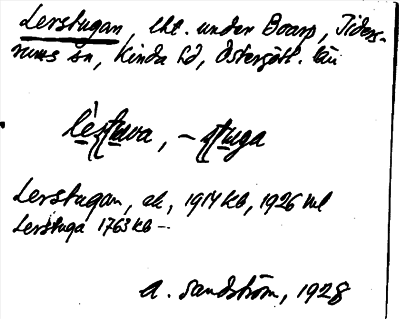 Lerstugan, lht. under Boarp, Tiders-
rums sn, Kinda hd, Östergötl. län
Lerstugan, ek, 1914 kb, 1926 ml
Lerstuga 1763 kb –
A. Sandström, 1928